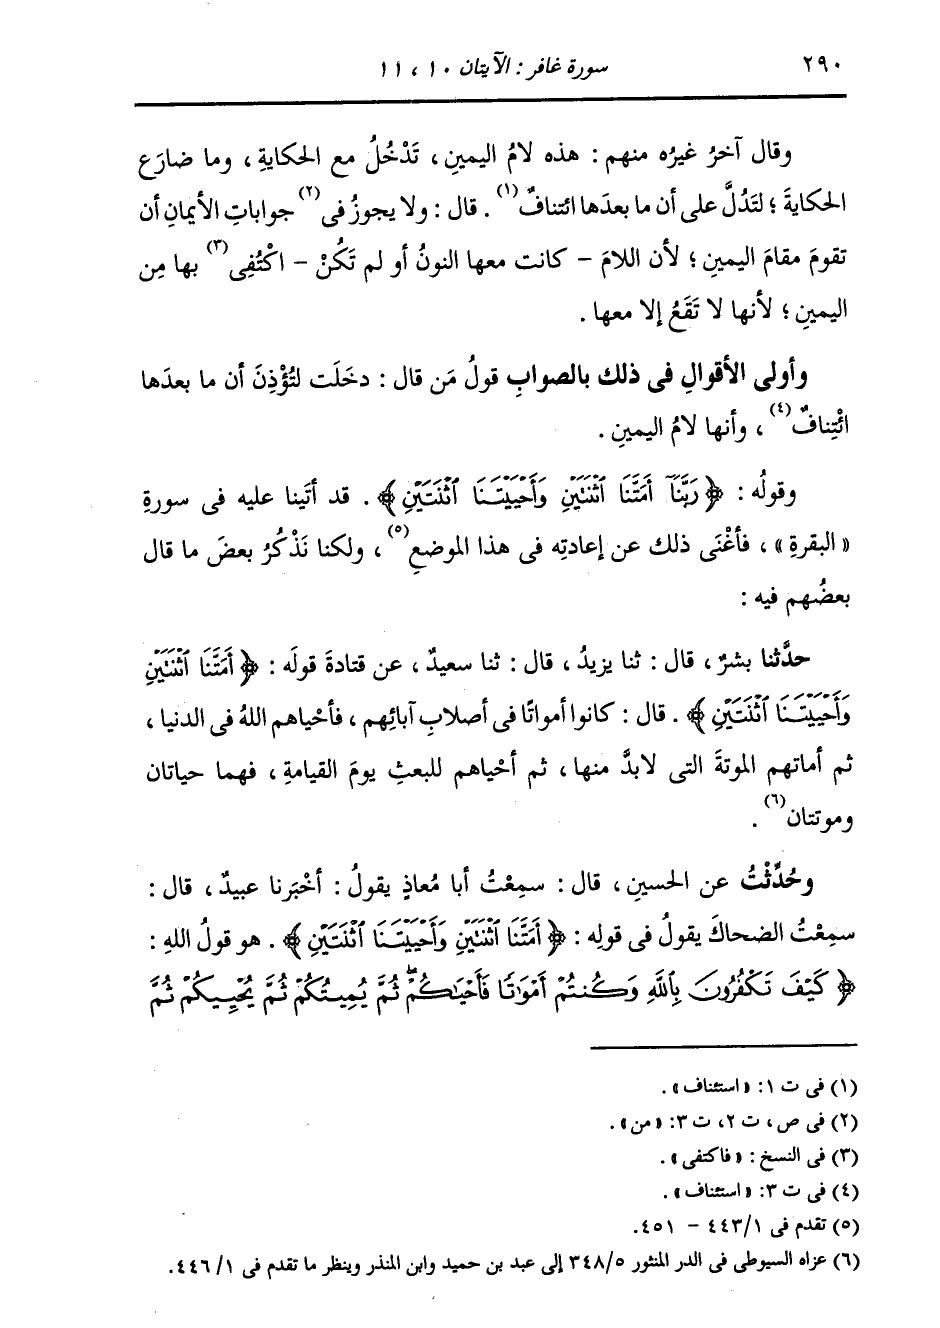 ٢٩٠ سورة غافر : الآيتان ١٠ ، ١١
وقال آخرُ غيرُه منهم : هذه لامُ اليمينِ ، تَدْخُلُ مع الحكايةِ ، وما ضارَع
الحكايةَ ؛ لتَدُلَّ على أن ما بعدَها ائتنافٌ(١) . قال : ولا يجوزُ فى(٢) جواباتِ الأيمانِ أن
تقومَ مقامَ اليمينِ ؛ لأن اللامَ – كانت معها النونُ أو لم تَكُنْ – اكْتُفِى(٣) بها مِن
اليمينِ ؛ لأنها لا تَقَعُ إلا معها .
وأولى الأقوالِ فى ذلك بالصوابِ قولُ مَن قال : دخَلَت لتُؤْذِنَ أن ما بعدَها
ائْتِنافٌ(٤) ، وأنها لامُ اليمينِ .
وقولُه : ﴿ رَبَّنَآ أَمَتَّنَا ٱثْنَتَيْنِ وَأَحْيَيْتَنَا ٱثْنَتَيْنِ ﴾ . قد أتَينا عليه فى سورةِ
« البقرةِ » ، فأغْنَى ذلك عن إعادتِه فى هذا الموضعِ(٥) ، ولكنا نَذْكُرُ بعضَ ما قال
بعضُهم فيه :
حدَّثنا بشرٌ ، قال : ثنا يزيدُ ، قال : ثنا سعيدٌ ، عن قتادةَ قولَه : ﴿ أَمَتَّنَا ٱثْنَتَيْنِ
وَأَحْيَيْتَنَا ٱثْنَتَيْنِ ﴾ . قال : كانوا أمواتًا فى أصلابِ آبائِهم ، فأحْياهم اللهُ فى الدنيا ،
ثم أماتهم الموتةَ التى لابدَّ منها ، ثم أحْياهم للبعثِ يومَ القيامةِ ، فهما حياتان
وموتتان(٦) .
وحُدِّثْتُ عن الحسينِ ، قال : سمِعْتُ أبا مُعاذٍ يقولُ : أخْبَرنا عبيدٌ ، قال :
سمِعْتُ الضحاكَ يقولُ فى قولِه : ﴿ أَمَتَّنَا ٱثْنَتَيْنِ وَأَحْيَيْتَنَا ٱثْنَتَيْنِ ﴾ . هو قولُ اللهِ :
﴿ كَيْفَ تَكْفُرُونَ بِٱللَّهِ وَكُنتُمْ أَمْوَٰتًا فَأَحْيَٰكُمْ ۖ ثُمَّ يُمِيتُكُمْ ثُمَّ يُحْيِيكُمْ ثُمَّ
(١) فى ت ١: « استئناف » .
(٢) فى ص، ت ٢، ت ٣: « من » .
(٣) فى النسخ : « فاكتفى » .
(٤) فى ت ٣: « استئناف » .
(٥) تقدم فى ٤٤٣/١ – ٤٥١.
(٦) عزاه السيوطى فى الدر المنثور ٣٤٨/٥ إلى عبد بن حميد وابن المنذر وينظر ما تقدم فى ١/ ٤٤٦.